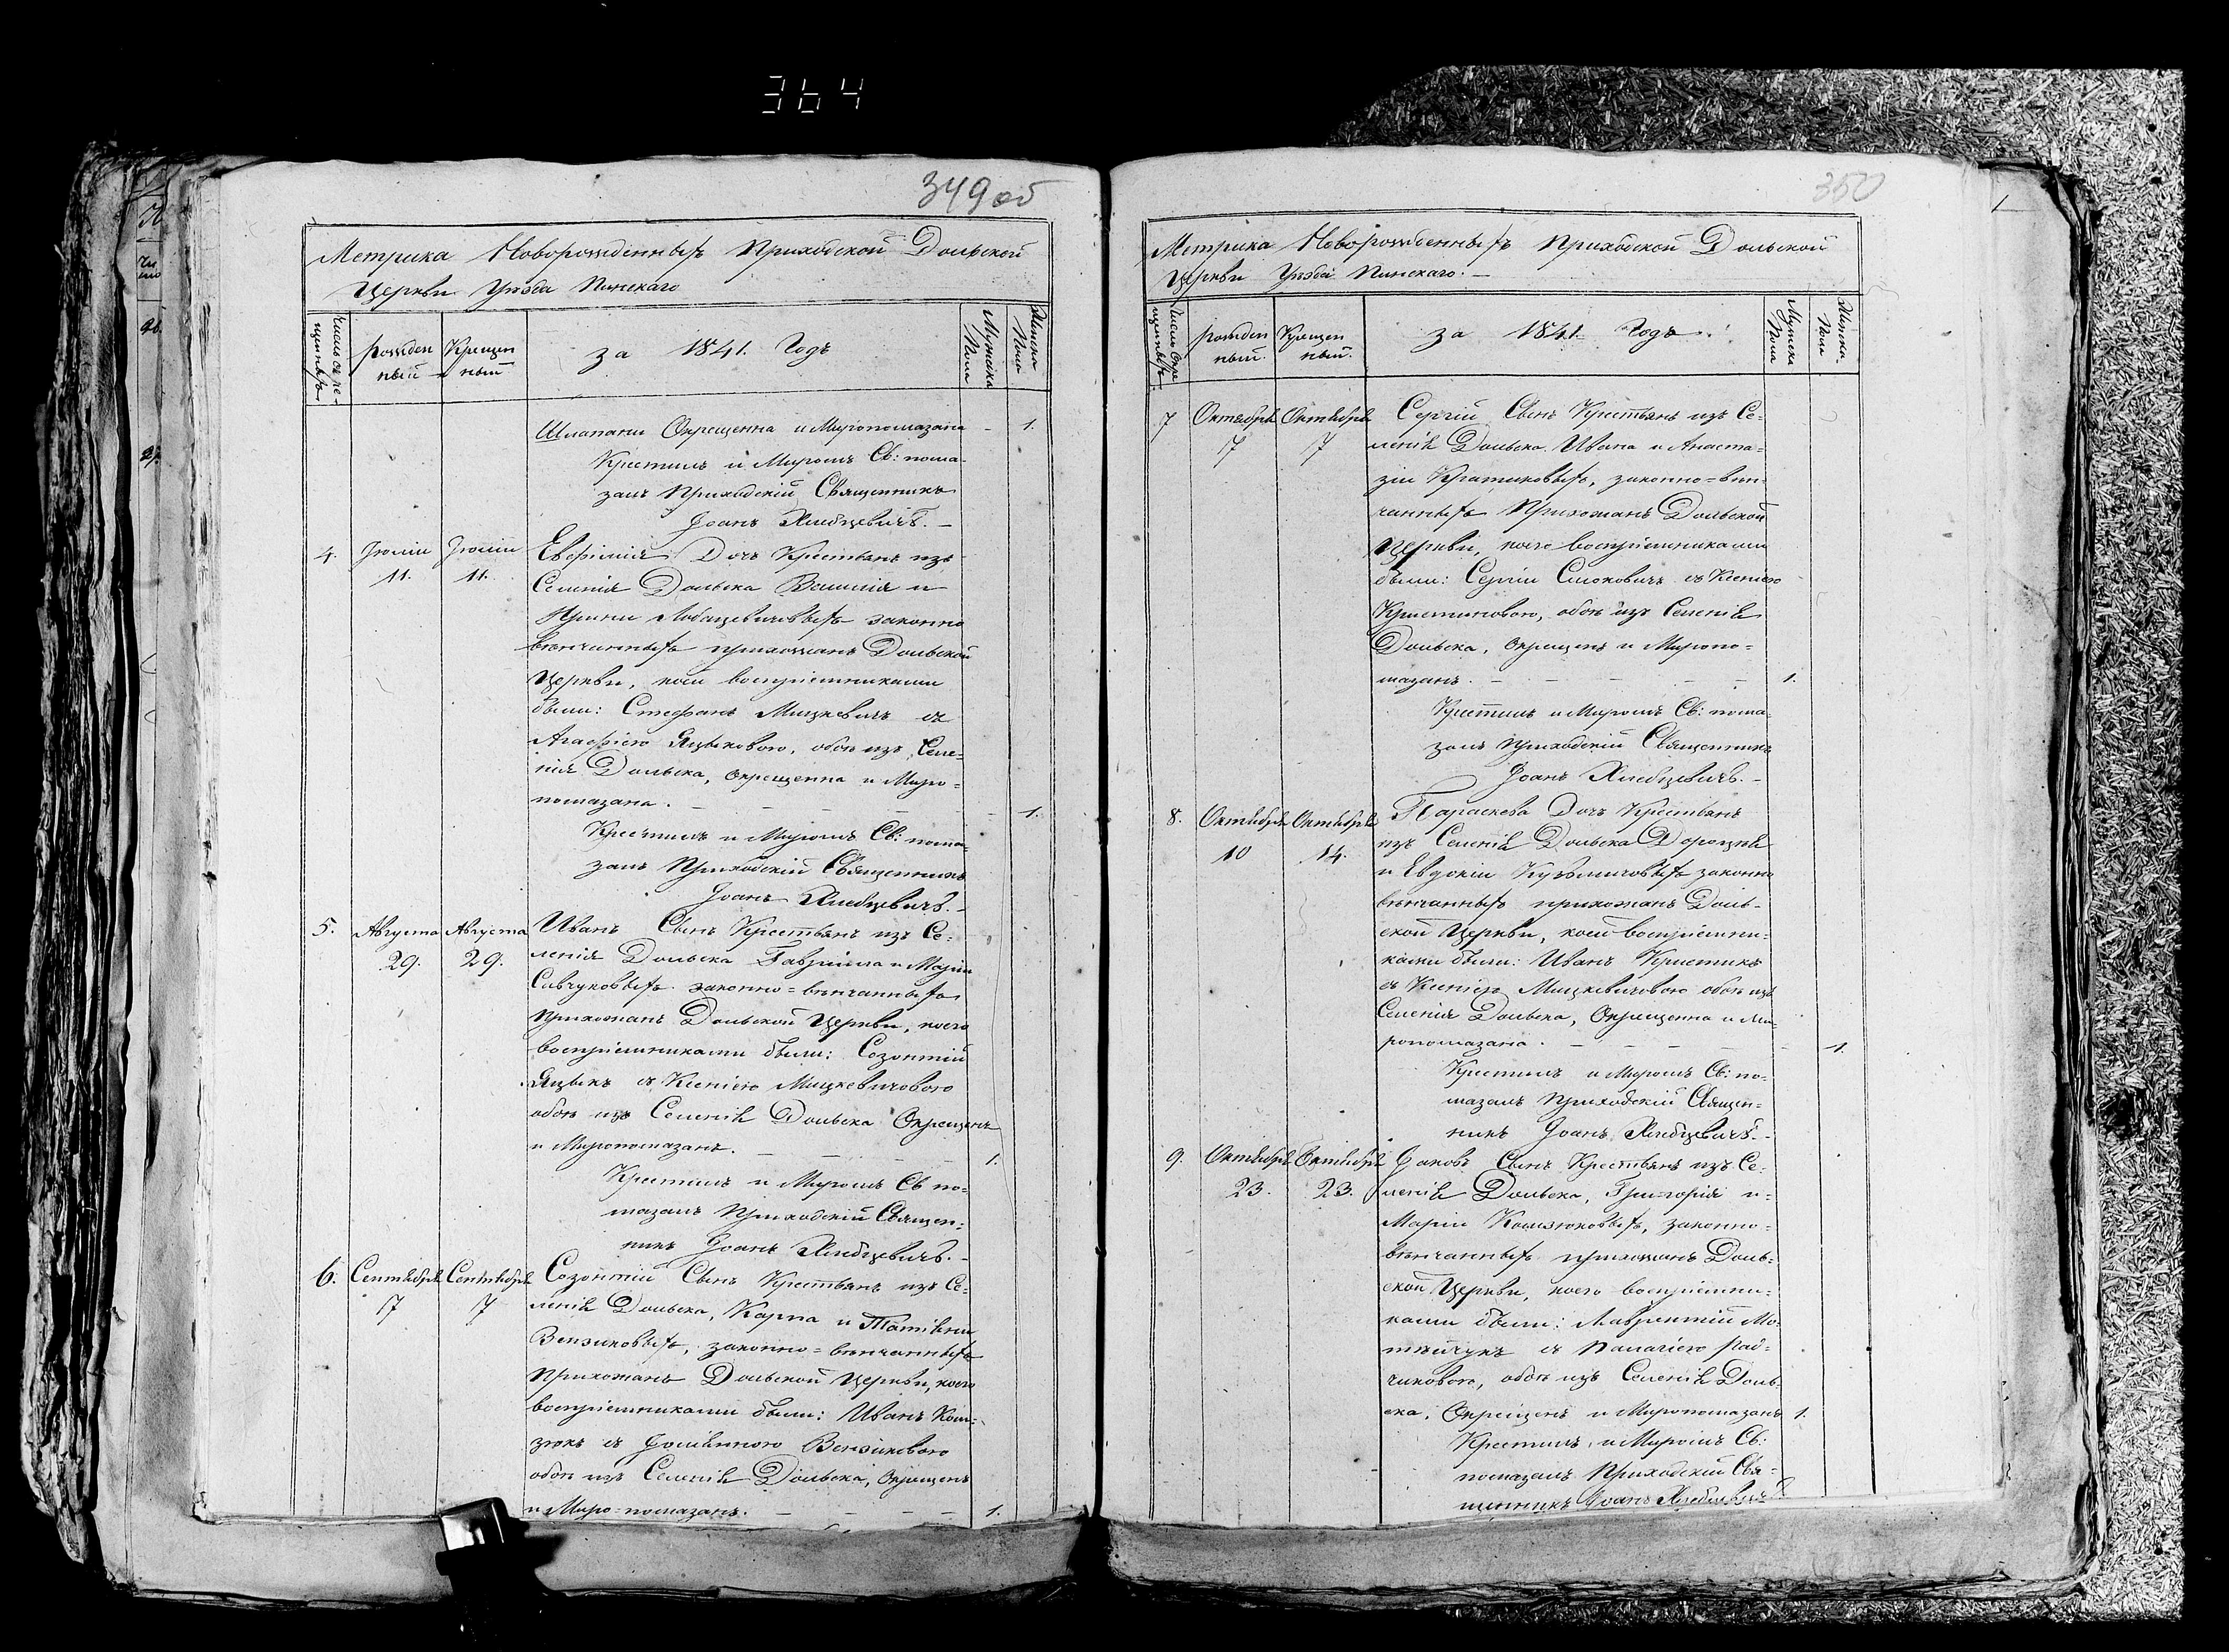 364
349 об
Метрика Новорожденныхъ Приходской Дольской
Церкви Уѣзда Пинскаго
рожден Крещен
ный ный
за 1841. Годъ
Мужска Пола
Женска Пола
Окрещенна и Миропомазана - 1.
Крестилъ и Миромъ Св: пома-
залъ Приходскій Священникъ
Іоанъ Хлебцевичъ. -
4. Іюлій Іюлій Евфимія Дочь Крестьянъ изъ
11. 11. Селенія Дольска Василія и
Ирины законно
вѣнчанныхъ прихожанъ Дольской
Церкви, коей воспріемниками
были: Стефанъ Мицкевичъ съ
Агафіею Яцыковою, обои изъ Селе-
нія Дольска, Окрещенна и Миро-
помазана. - - - - 1.
Крестилъ и Миромъ Св: пома-
залъ Приходскій Священникъ
Іоанъ Хлебцевичъ. -
5. Августа Августа Иванъ Сынъ Крестьянъ изъ Се-
29. 29. ленія Дольска Гавріила и Маріи
Савчуковыхъ законно=вѣнчанныхъ
Прихожанъ Дольской Церкви, коего
воспріемниками были: Созонтій
Яцыкъ съ Ксеніею Мицкевичовою
обои изъ Селенія Дольска Окрещенъ
и Миропомазанъ. - - - 1.
Крестилъ и Миромъ Св по-
мазалъ Приходскій Священ-
никъ Іоанъ Хлебцевичъ. -
6. Сентября Сентября Созонтій Сынъ Крестьянъ изъ Се-
7 7 ленія Дольска, Карпа и Татіяны
законно=вѣнчанныхъ
Прихожанъ Дольской Церкви, коего
воспріемниками были: Иванъ Ком-
зюкъ съ
обои изъ Селенія Дольска, Окрещенъ
и Миро=помазанъ. - - - - 1.
350
Метрика Новорожденныхъ Приходской Дольской
Церкви Уѣзда Пинскаго. -
рожден Крещен
ный. ный.
за 1841. Годъ.
Мужска Пола
Женска. Пола
7 Октября Октября Сергій Сынъ Крестьянъ изъ Се-
7 7 ленія Дольска Ивана и Анаста-
зіи законно=вѣн-
чанныхъ Прихожанъ Дольской
Церкви, коего воспріемниками
были: Сергій съ Ксеніею
обои изъ Селенія
Дольска, Окрещенъ и Миропо-
мазанъ. - - - - - 1.
Крестилъ и Миромъ Св: пома-
залъ приходскій Священникъ
Іоанъ Хлебцевичъ. -
8. Октября Октября Параскева Дочь Крестьянъ
10 14. изъ Селенія Дольска Дорофея
и Евдокіи Кузьмичовыхъ законно
вѣнчанныхъ прихожанъ Доль-
ской Церкви, коей воспріемни-
ками были: Иванъ
съ Ксеніею Мицкевичовою обои изъ
Селенія Дольска, Окрещенна и Ми-
ропомазана. - - - - - 1.
Крестилъ и Миромъ Св: по-
мазалъ Приходскій Священ-
никъ Іоанъ Хлебцевичъ. -
9. Октября Октября Іаковъ Сынъ Крестьянъ изъ Се-
23. 23. ленія Дольска, Григорія и
Маріи Комзюковыхъ, законно-
вѣнчанныхъ прихожанъ Доль-
ской Церкви, коего воспріемни-
ками были: Лаврентій Мо-
съ Палагіею Рад-
чиковою, обои изъ Селенія Доль-
ска, Окрещенъ и Миропомазанъ 1.
Крестилъ и Миромъ Св:
помазалъ Приходскій Свя-
щенникъ Іоанъ Хлебцевичъ